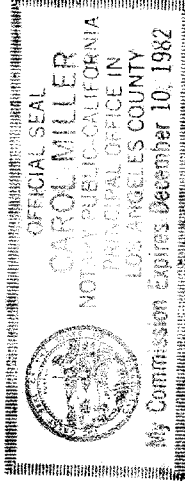 OFFICIAL SEAL
CAROL MILLER
NOTARY PUBLIC-CALIFORNIA
PRINCIPAL OFFICE IN
LOS ANGELES COUNTY
My Commission Expires December 10, 1982